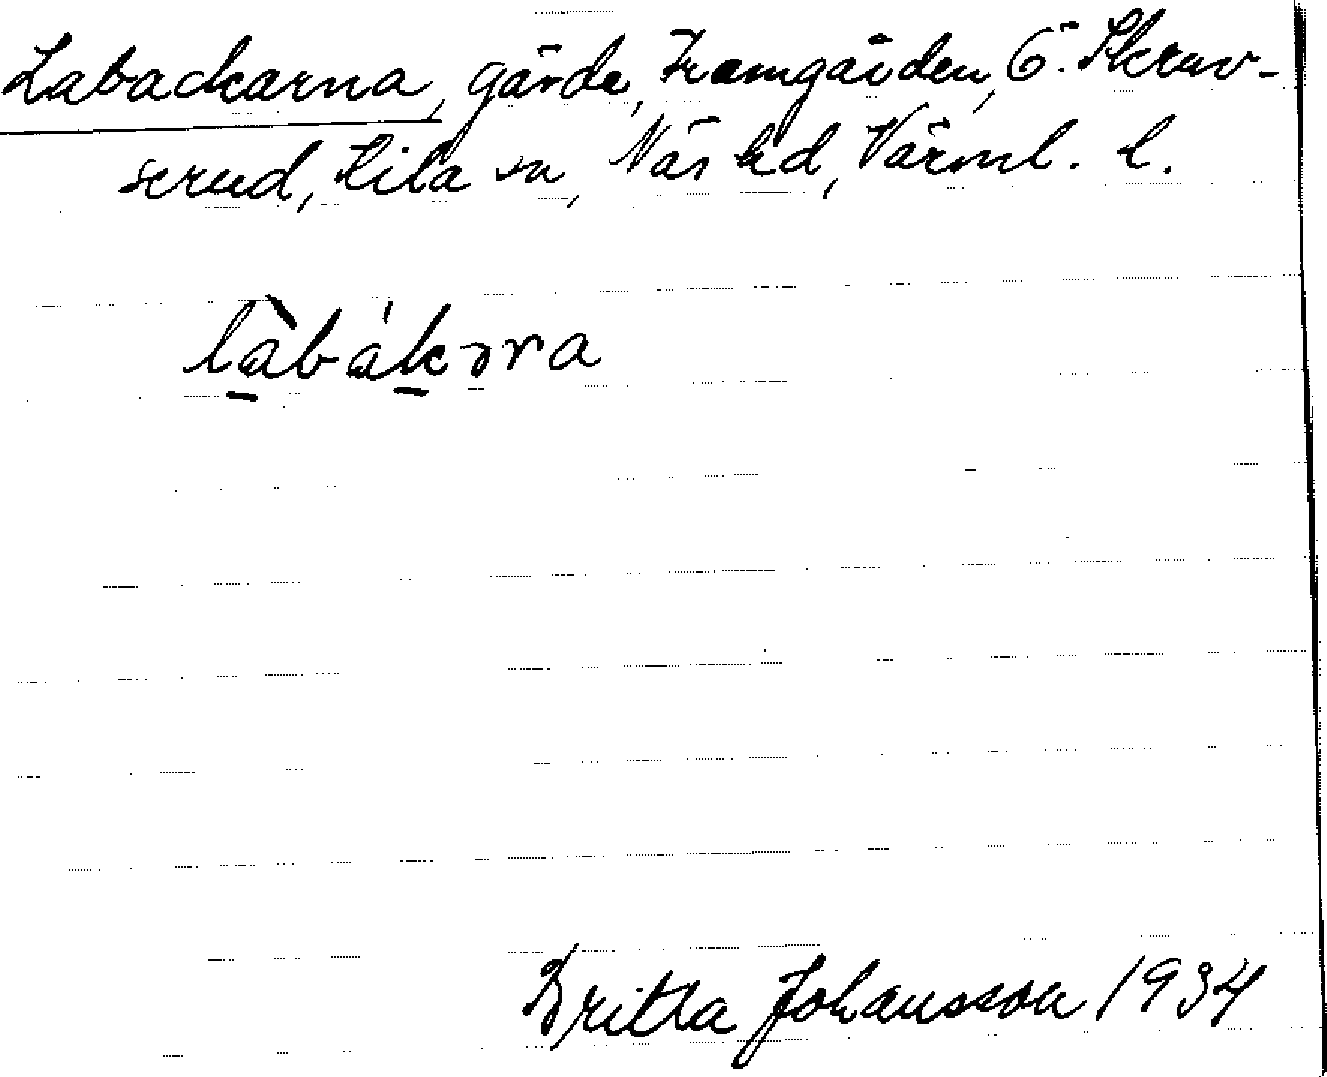 Labackarna, gärde, Framgården, Ö. Skruv-
serud, Kila sn, Näs hd, Värml. l.
làbákəra
Britta Johansson 1934